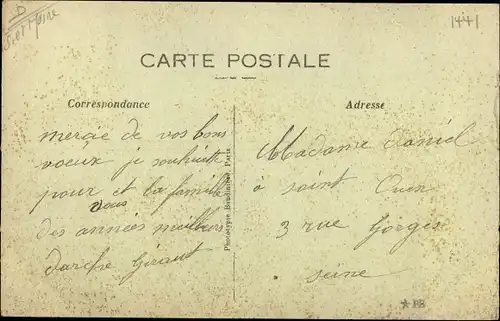 1441
CARTE POSTALE
Correspondance
Adresse
mercie de vos bons
voeux je souhaite
pour vous et la famille
des années meilleurs
Madame Daniel
à saint Ouen
3 rue Gorges
seine
Phototypie Baudinière, Paris
* PB